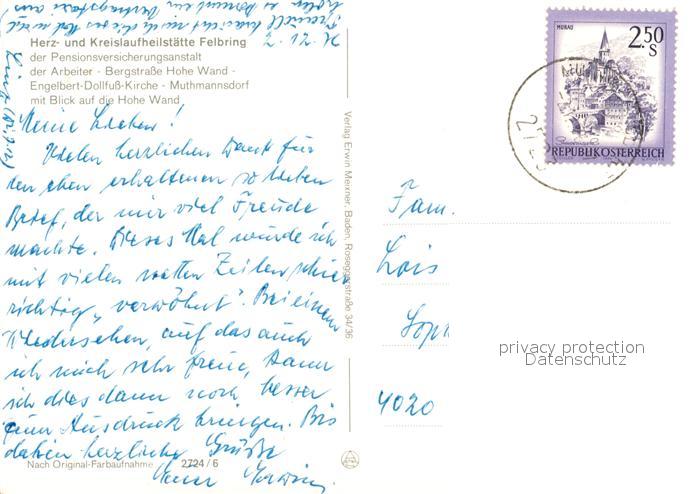 Herz- und Kreislaufheilstätte Felbring
der Pensionsversicherungsanstalt
der Arbeiter - Bergstraße Hohe Wand -
Engelbert-Dollfuß-Kirche - Muthmannsdorf
mit Blick auf die Hohe Wand
Meine Lieben!
Vielen herzlichen Dank für
den eben erhaltenen so lieben
Brief, der mir viel Freude
machte. Dieses Mal wurde ich
mit vielen netten Zeilen
richtig "verwöhnt". Bei einem
Wiedersehen, auf das auch
ich mich sehr freue, kann
ich dies dann noch besser
zum Ausdruck bringen. Bis
dahin herzliche Grüße
Nach Original-Farbaufnahme 2724/6
Verlag Erwin Meixner, Baden, Roseggerstraße 34/36
MURAU
2.50
S
REPUBLIK ÖSTERREICH
Fam.
Lois
4020
privacy protection
Datenschutz